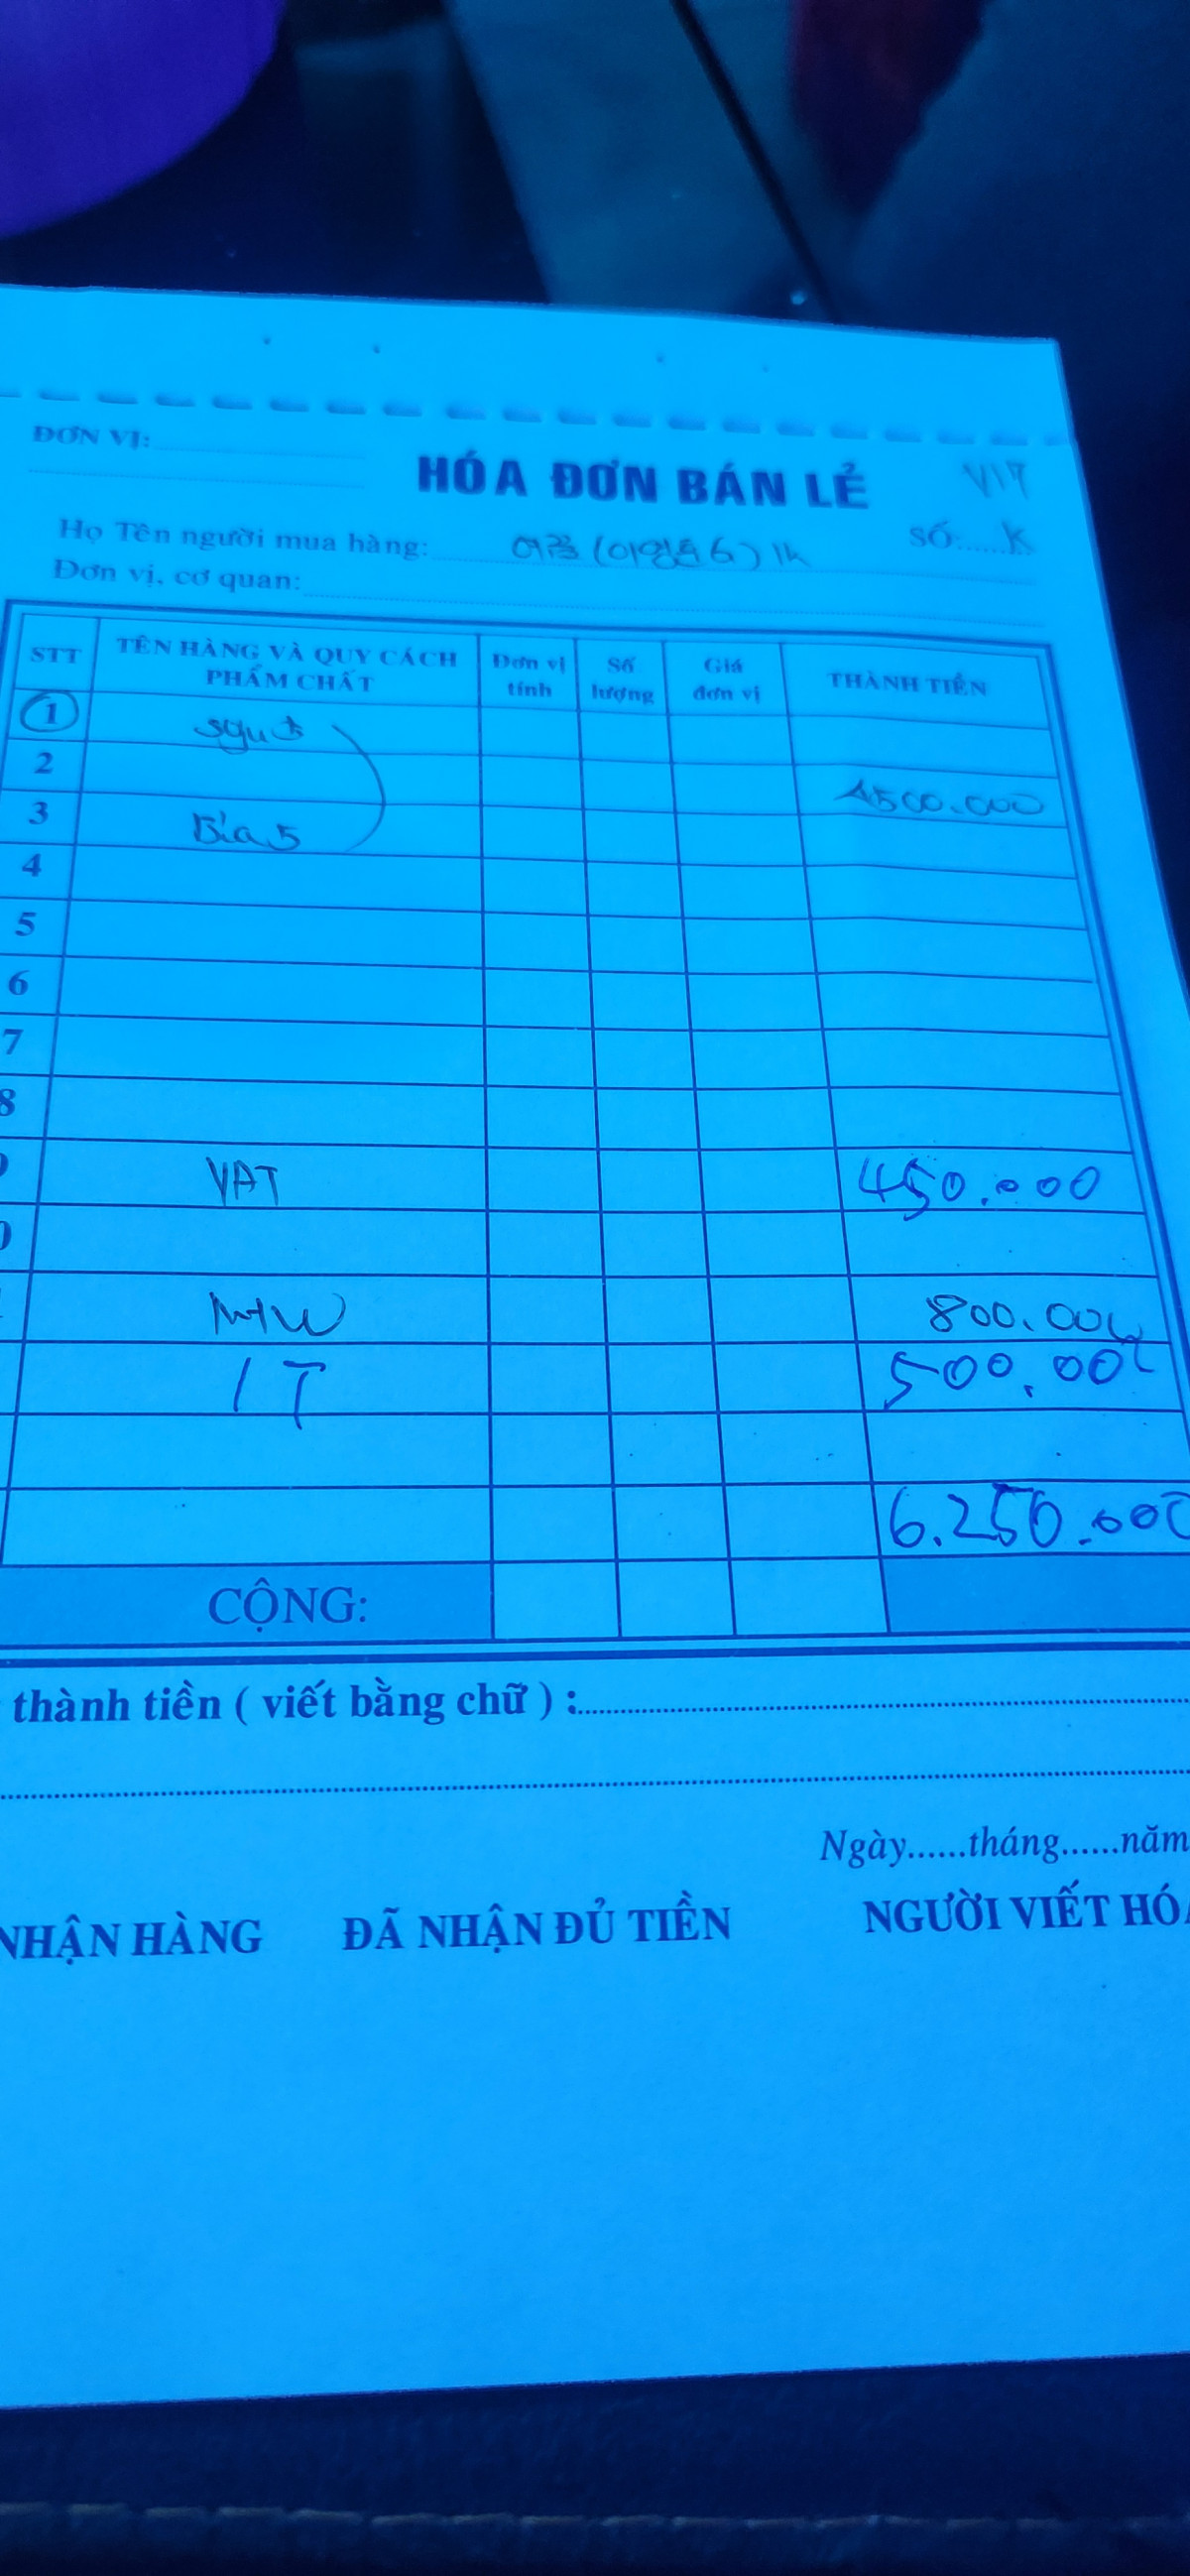 ĐƠN VỊ:
HÓA ĐƠN BÁN LẺ
V17
Họ Tên người mua hàng:
SỐ: K
Đơn vị, cơ quan:
STT TÊN HÀNG VÀ QUY CÁCH PHẨM CHẤT Đơn vị tính Số lượng Giá đơn vị THÀNH TIỀN
1
2 4500.000
3 Bia 5
4
5
6
7
8
VAT 450.000
800.000
1 T 500.000
6.250.000
CỘNG:
thành tiền ( viết bằng chữ ) :
Ngày......tháng......năm
NHẬN HÀNG ĐÃ NHẬN ĐỦ TIỀN NGƯỜI VIẾT